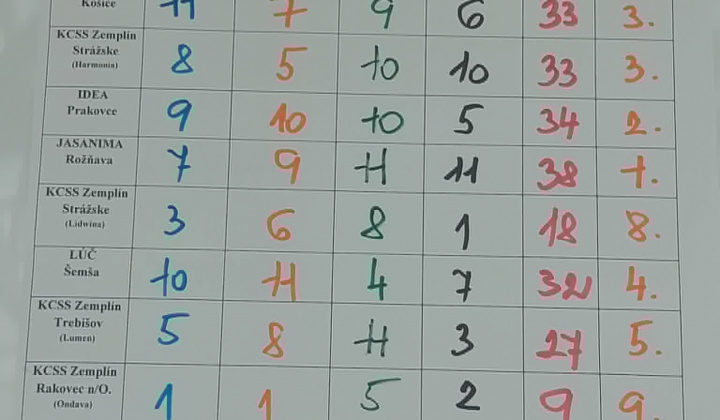 Košice 11 7 9 6 33 3.
KCSS Zemplín
Strážske 8 5 10 10 33 3.
(Harmonia)
IDEA
Prakovce 9 10 10 5 34 2.
JASANIMA
Rožňava 7 9 11 11 38 1.
KCSS Zemplín
Strážske 3 6 8 1 18 8.
(Lidwina)
LÚČ
Šemša 10 11 4 7 32 4.
KCSS Zemplín
Trebišov 5 8 11 3 27 5.
(Lumen)
KCSS Zemplín
Rakovec n/O. 1 1 5 2 9 9
(Ondava)